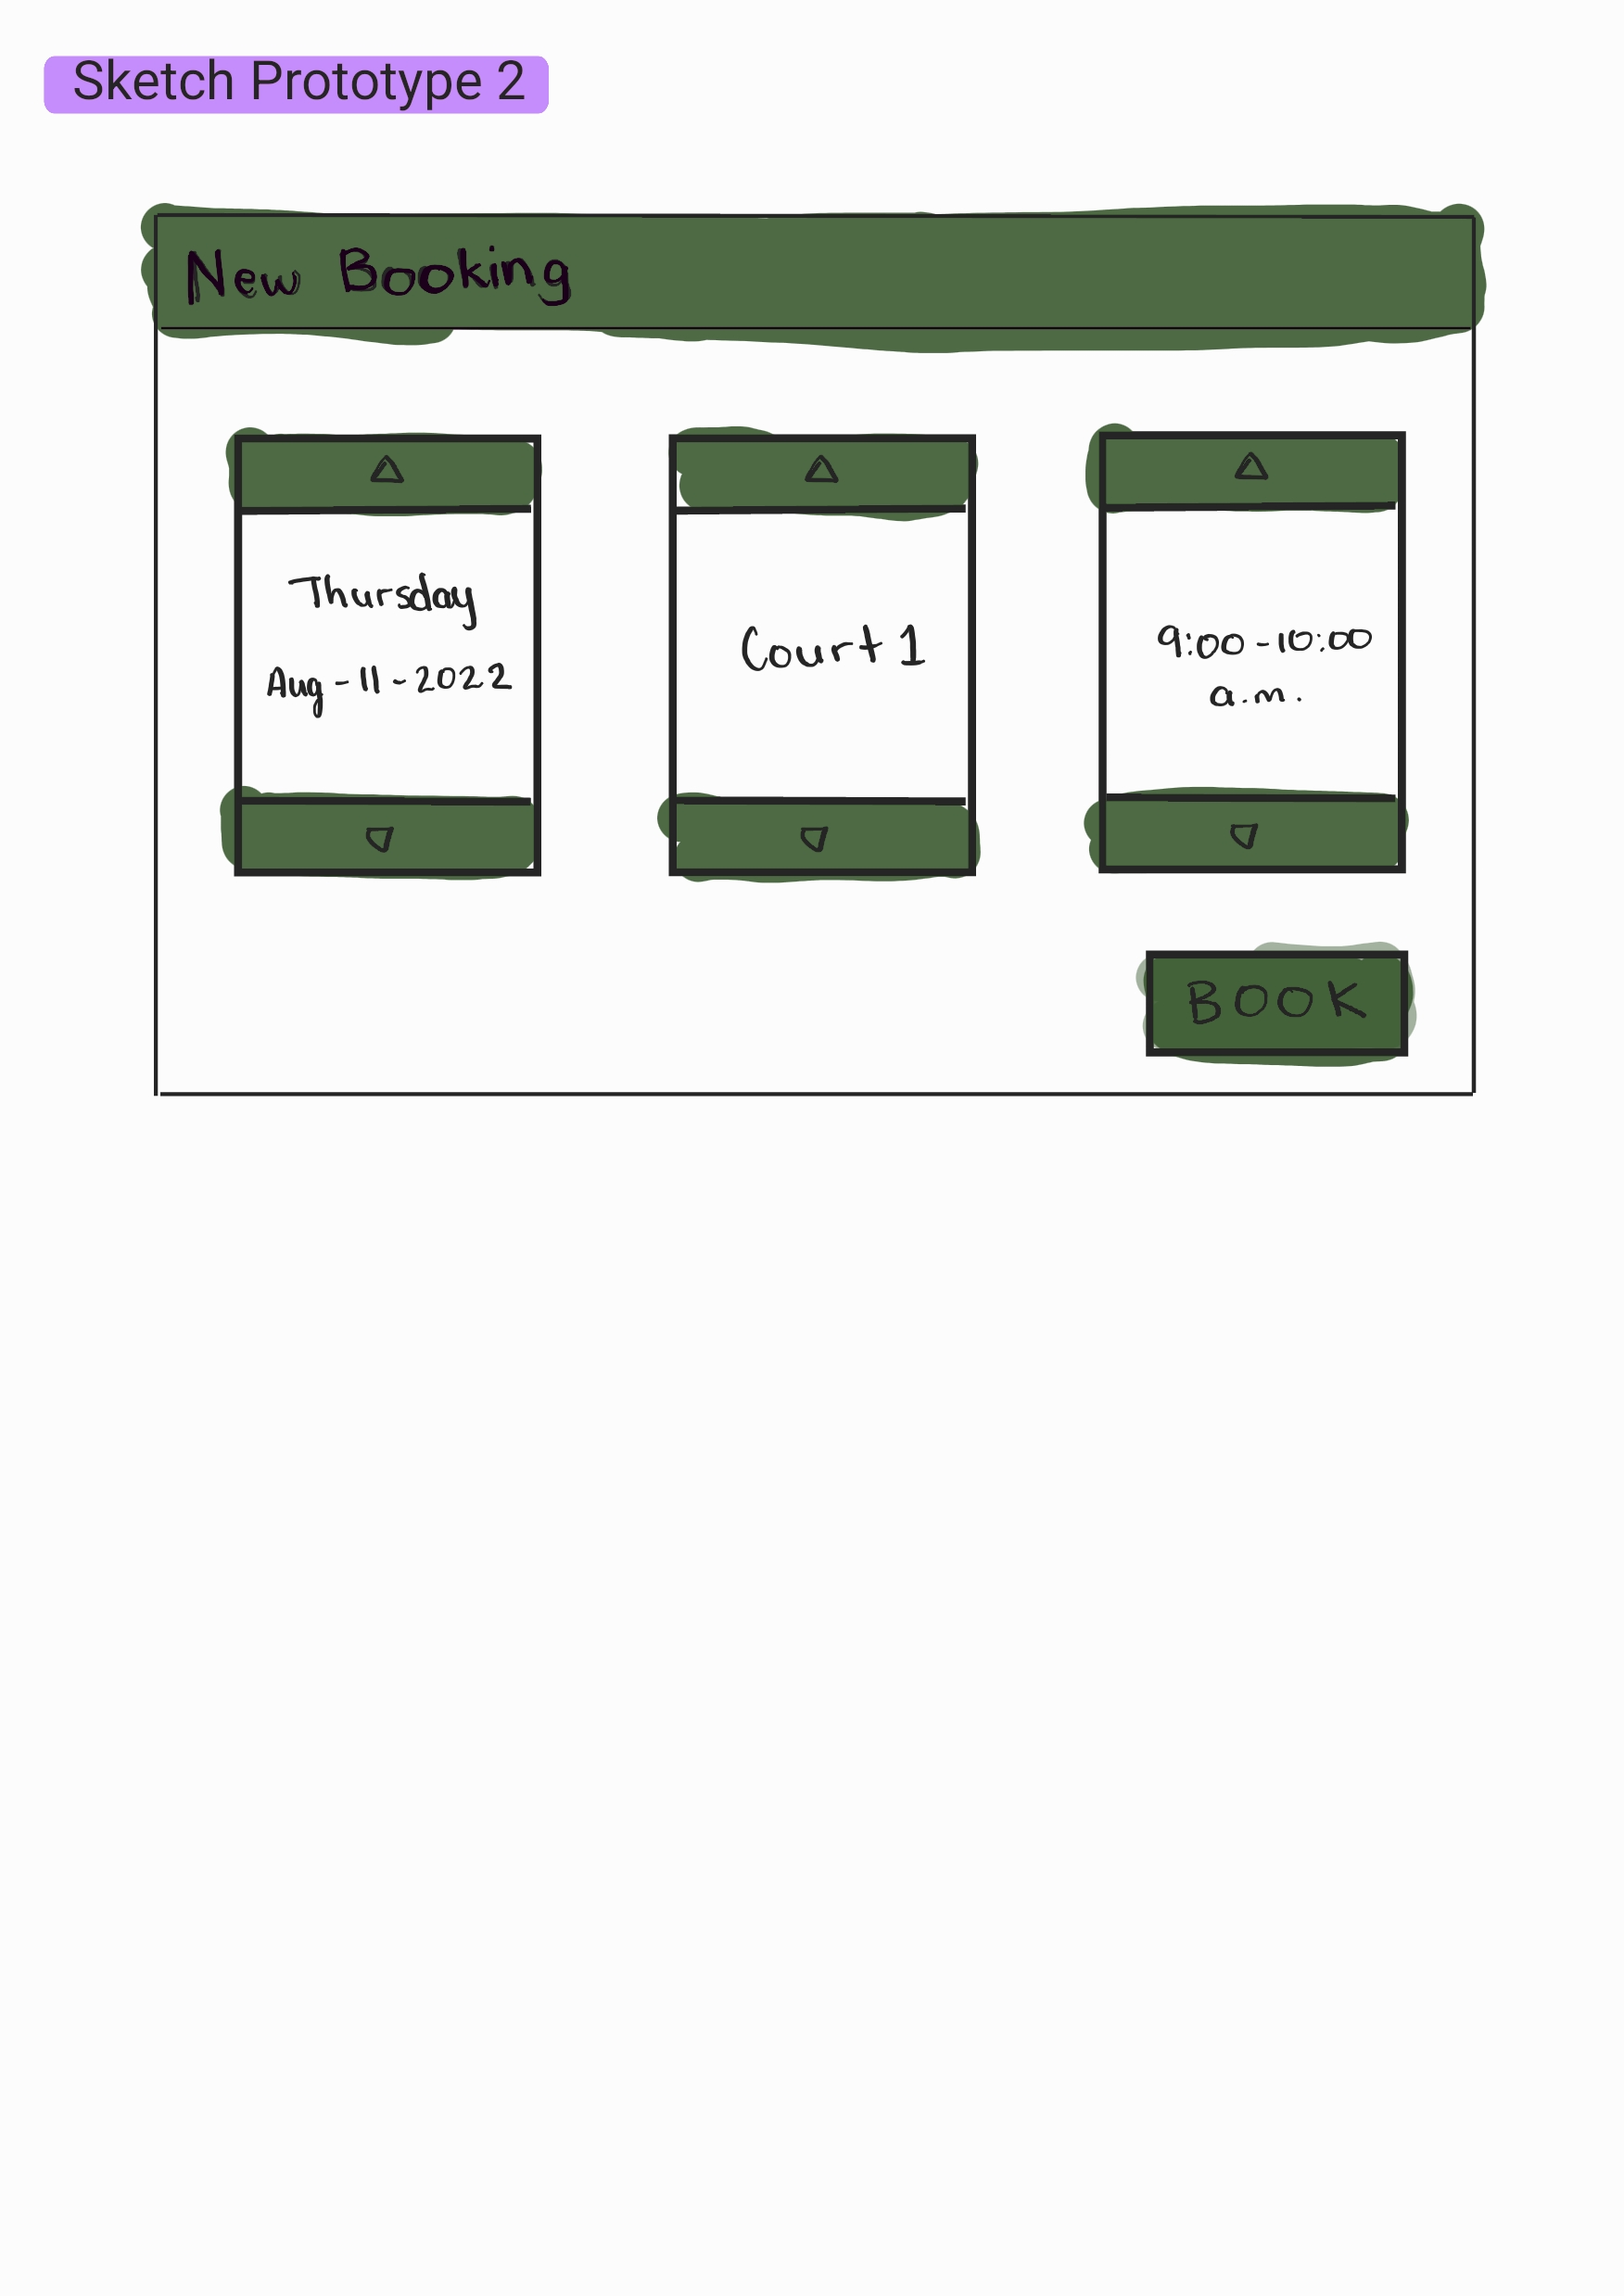 Sketch Prototype 2
New Booking
Thursday
Aug-11-2022
Court 1
9:00-10:00
a.m.
BOOK